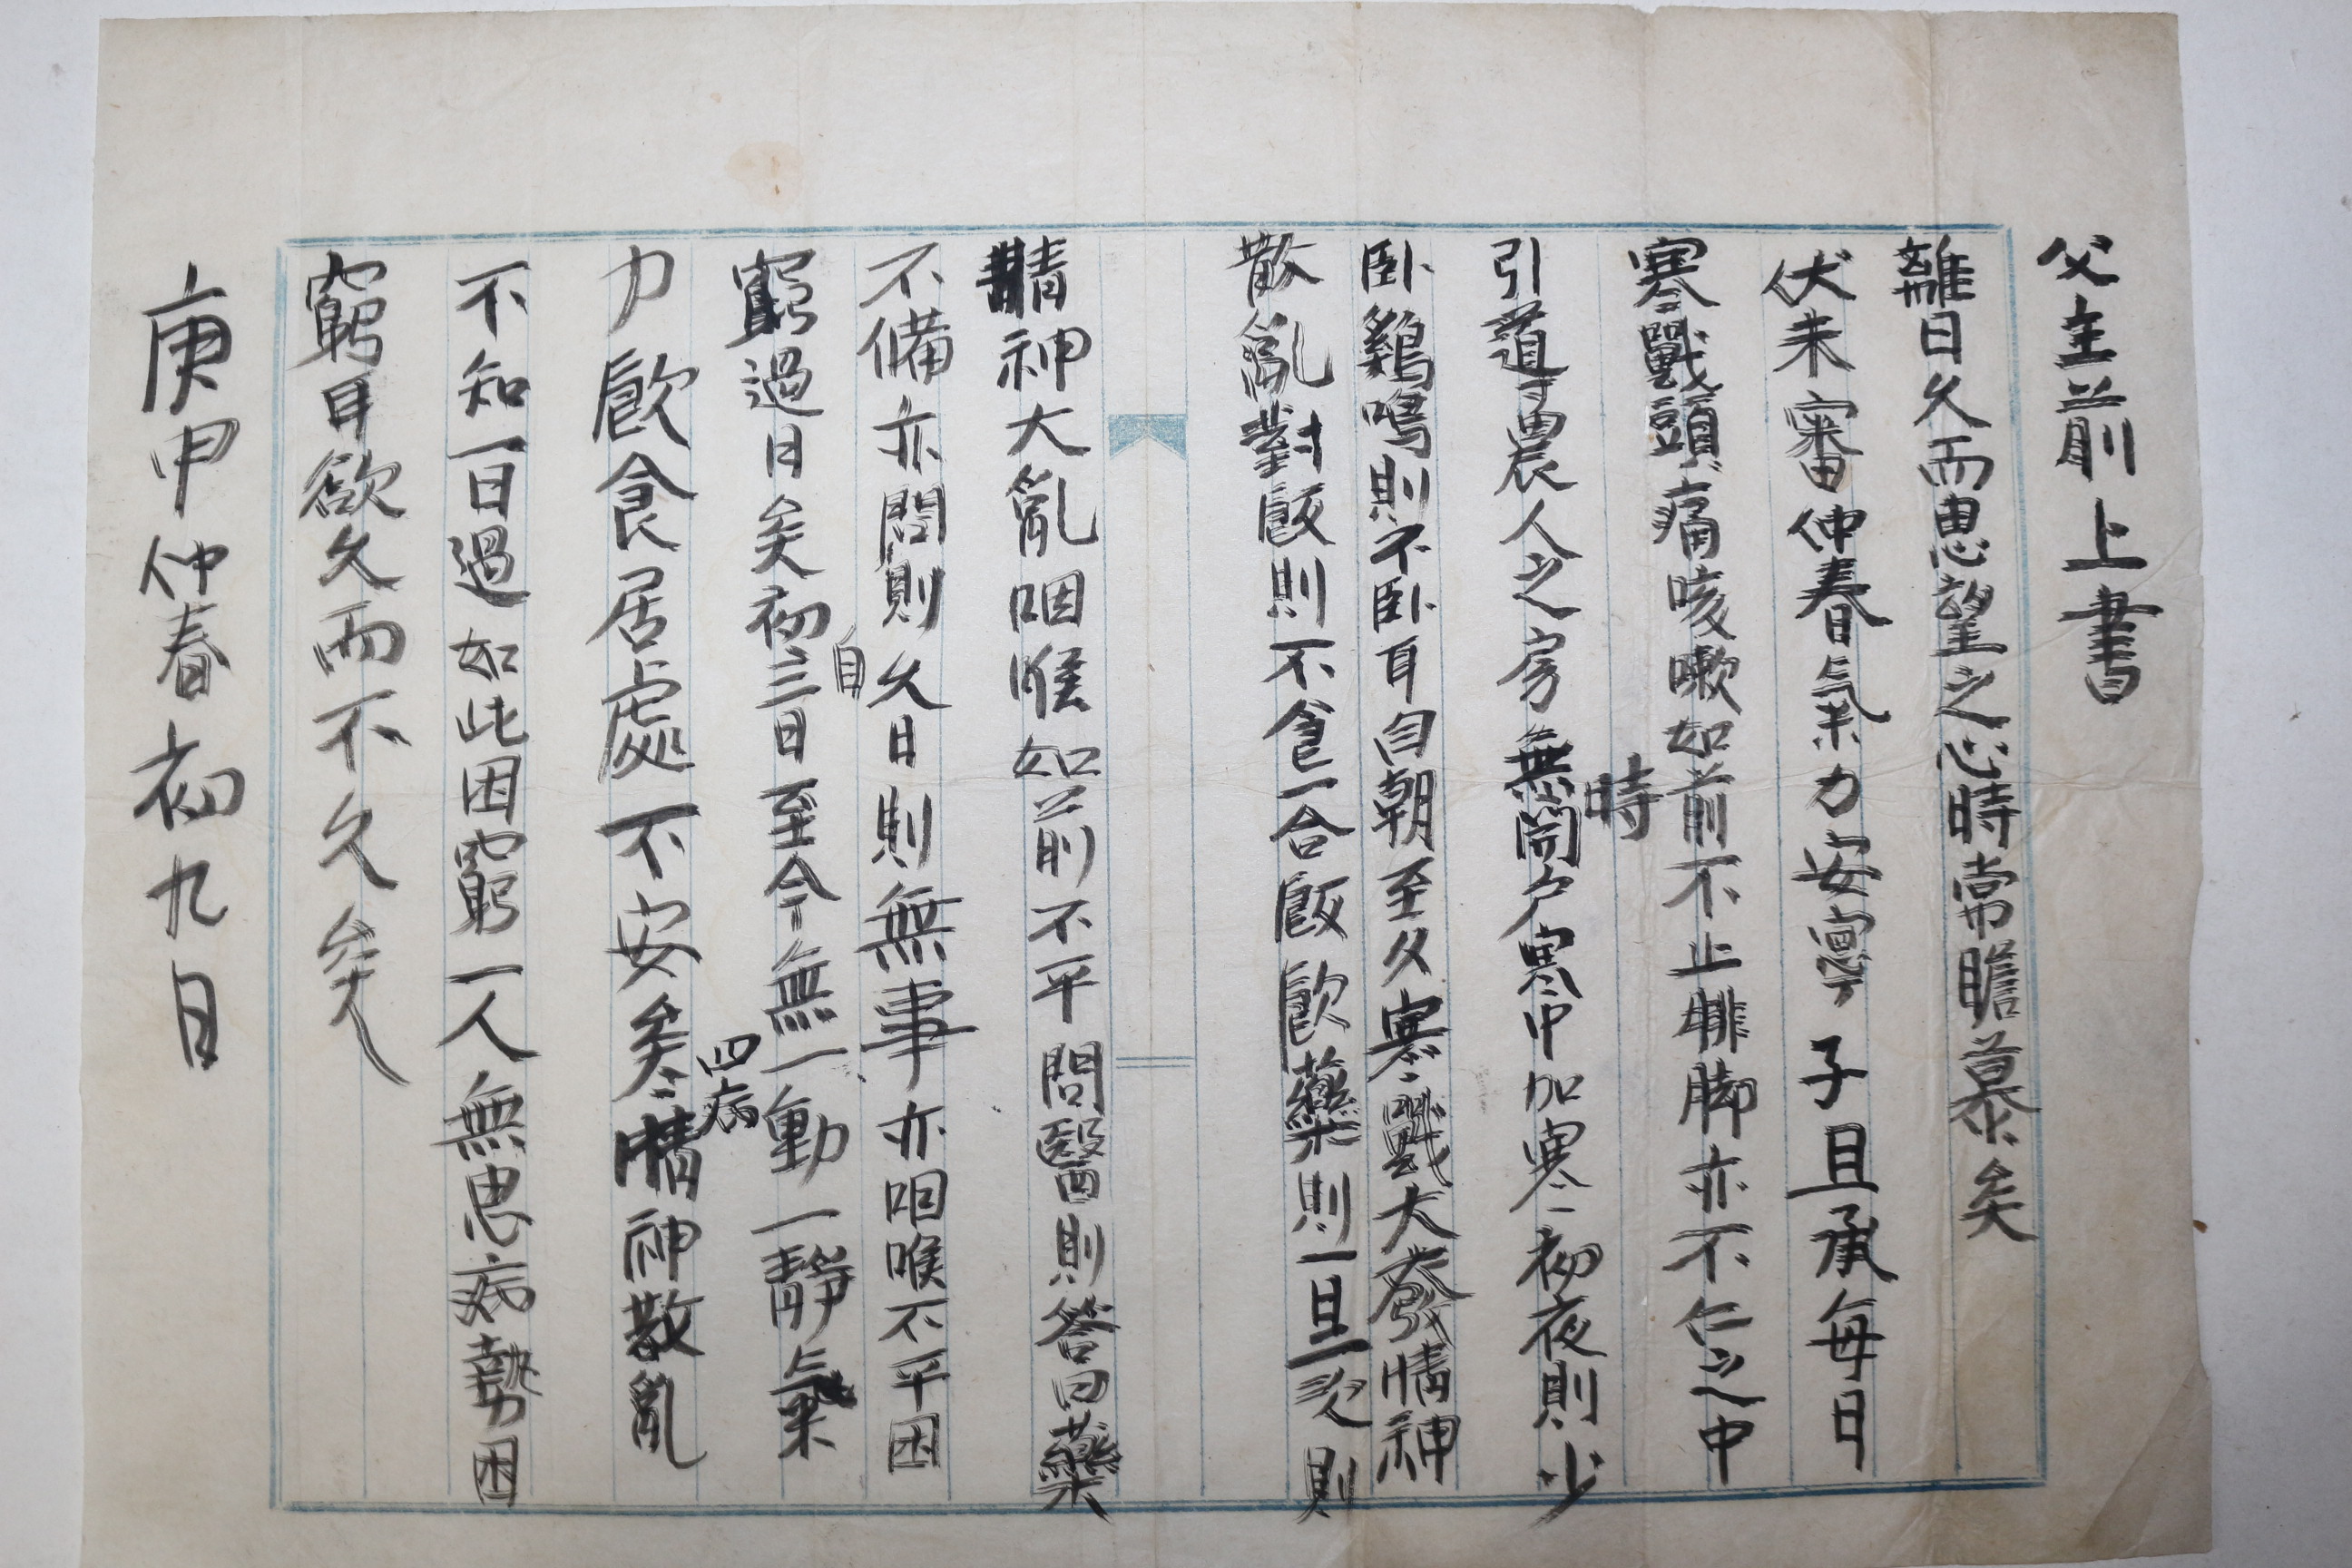 父主前上書
離日久而思望之心時常瞻慕矣
伏未審仲春氣力安寧子且承每日
寒戰頭痛咳嗽如前不止腓脚亦不仁之中
時
引導農人之房無開戶寒中加寒初夜則少
臥鷄鳴則不臥耳自朝至夕寒戰大發情神
散亂對飯則不食一合飯飮藥則一旦 則
精神大亂咽喉如前不平問醫則答曰藥
不備亦問則久日則無事亦咽喉不平困
自
窮過日矣初三日至今無一動一靜氣
力飮食居處不安矣精神散亂
四病
不知一日過如此困窮一人無思病勢困
窮耳欲久而不久矣
庚申仲春初九日